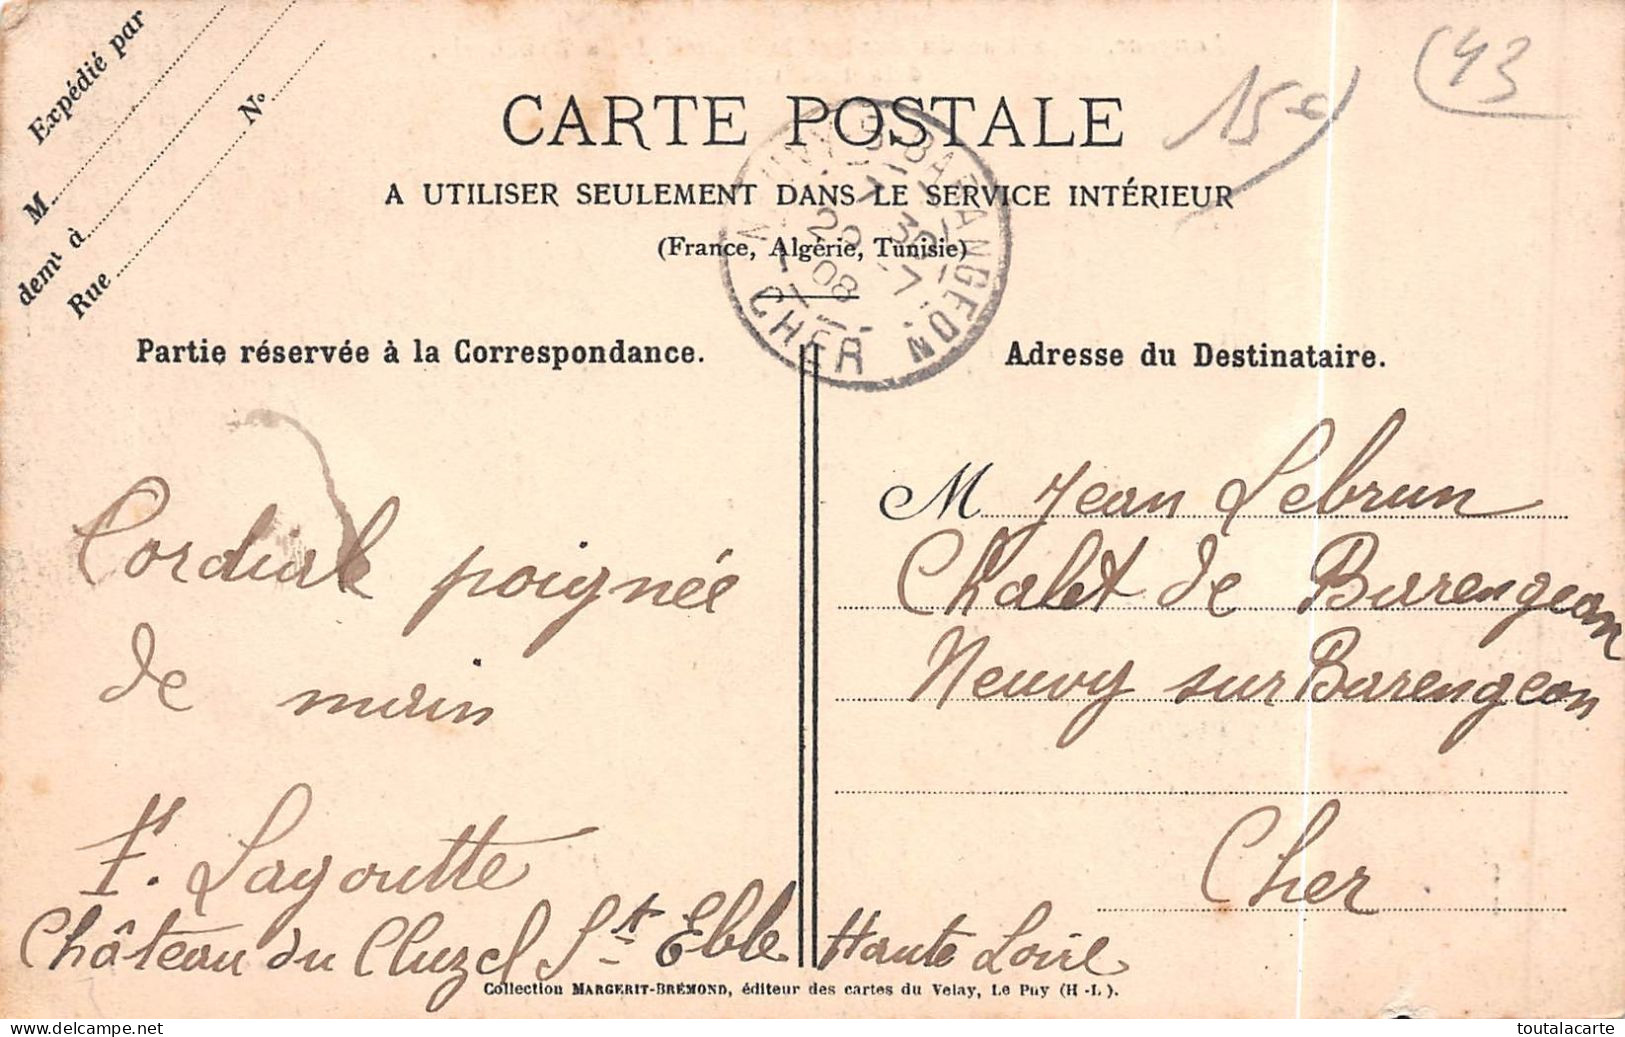 Expédié par
M
N°
demt à
Rue
(43
15€
CARTE POSTALE
A UTILISER SEULEMENT DANS LE SERVICE INTÉRIEUR
(France, Algérie, Tunisie)
NEUVY-S-BARANGEON
7 30
20 -7
08
CHER
Partie réservée à la Correspondance.
Adresse du Destinataire.
Cordiale poignée
de main
F. Lagoutte
Château du Cluzel St Eble Haute Loire
M Jean Lebrun
Chalet de Barengeon
Neuvy sur Barengeon
Cher
Collection MARGERIT-BRÉMOND, éditeur des cartes du Velay, Le Puy (H.-L.).
www.delcampe.net
toutalacarte